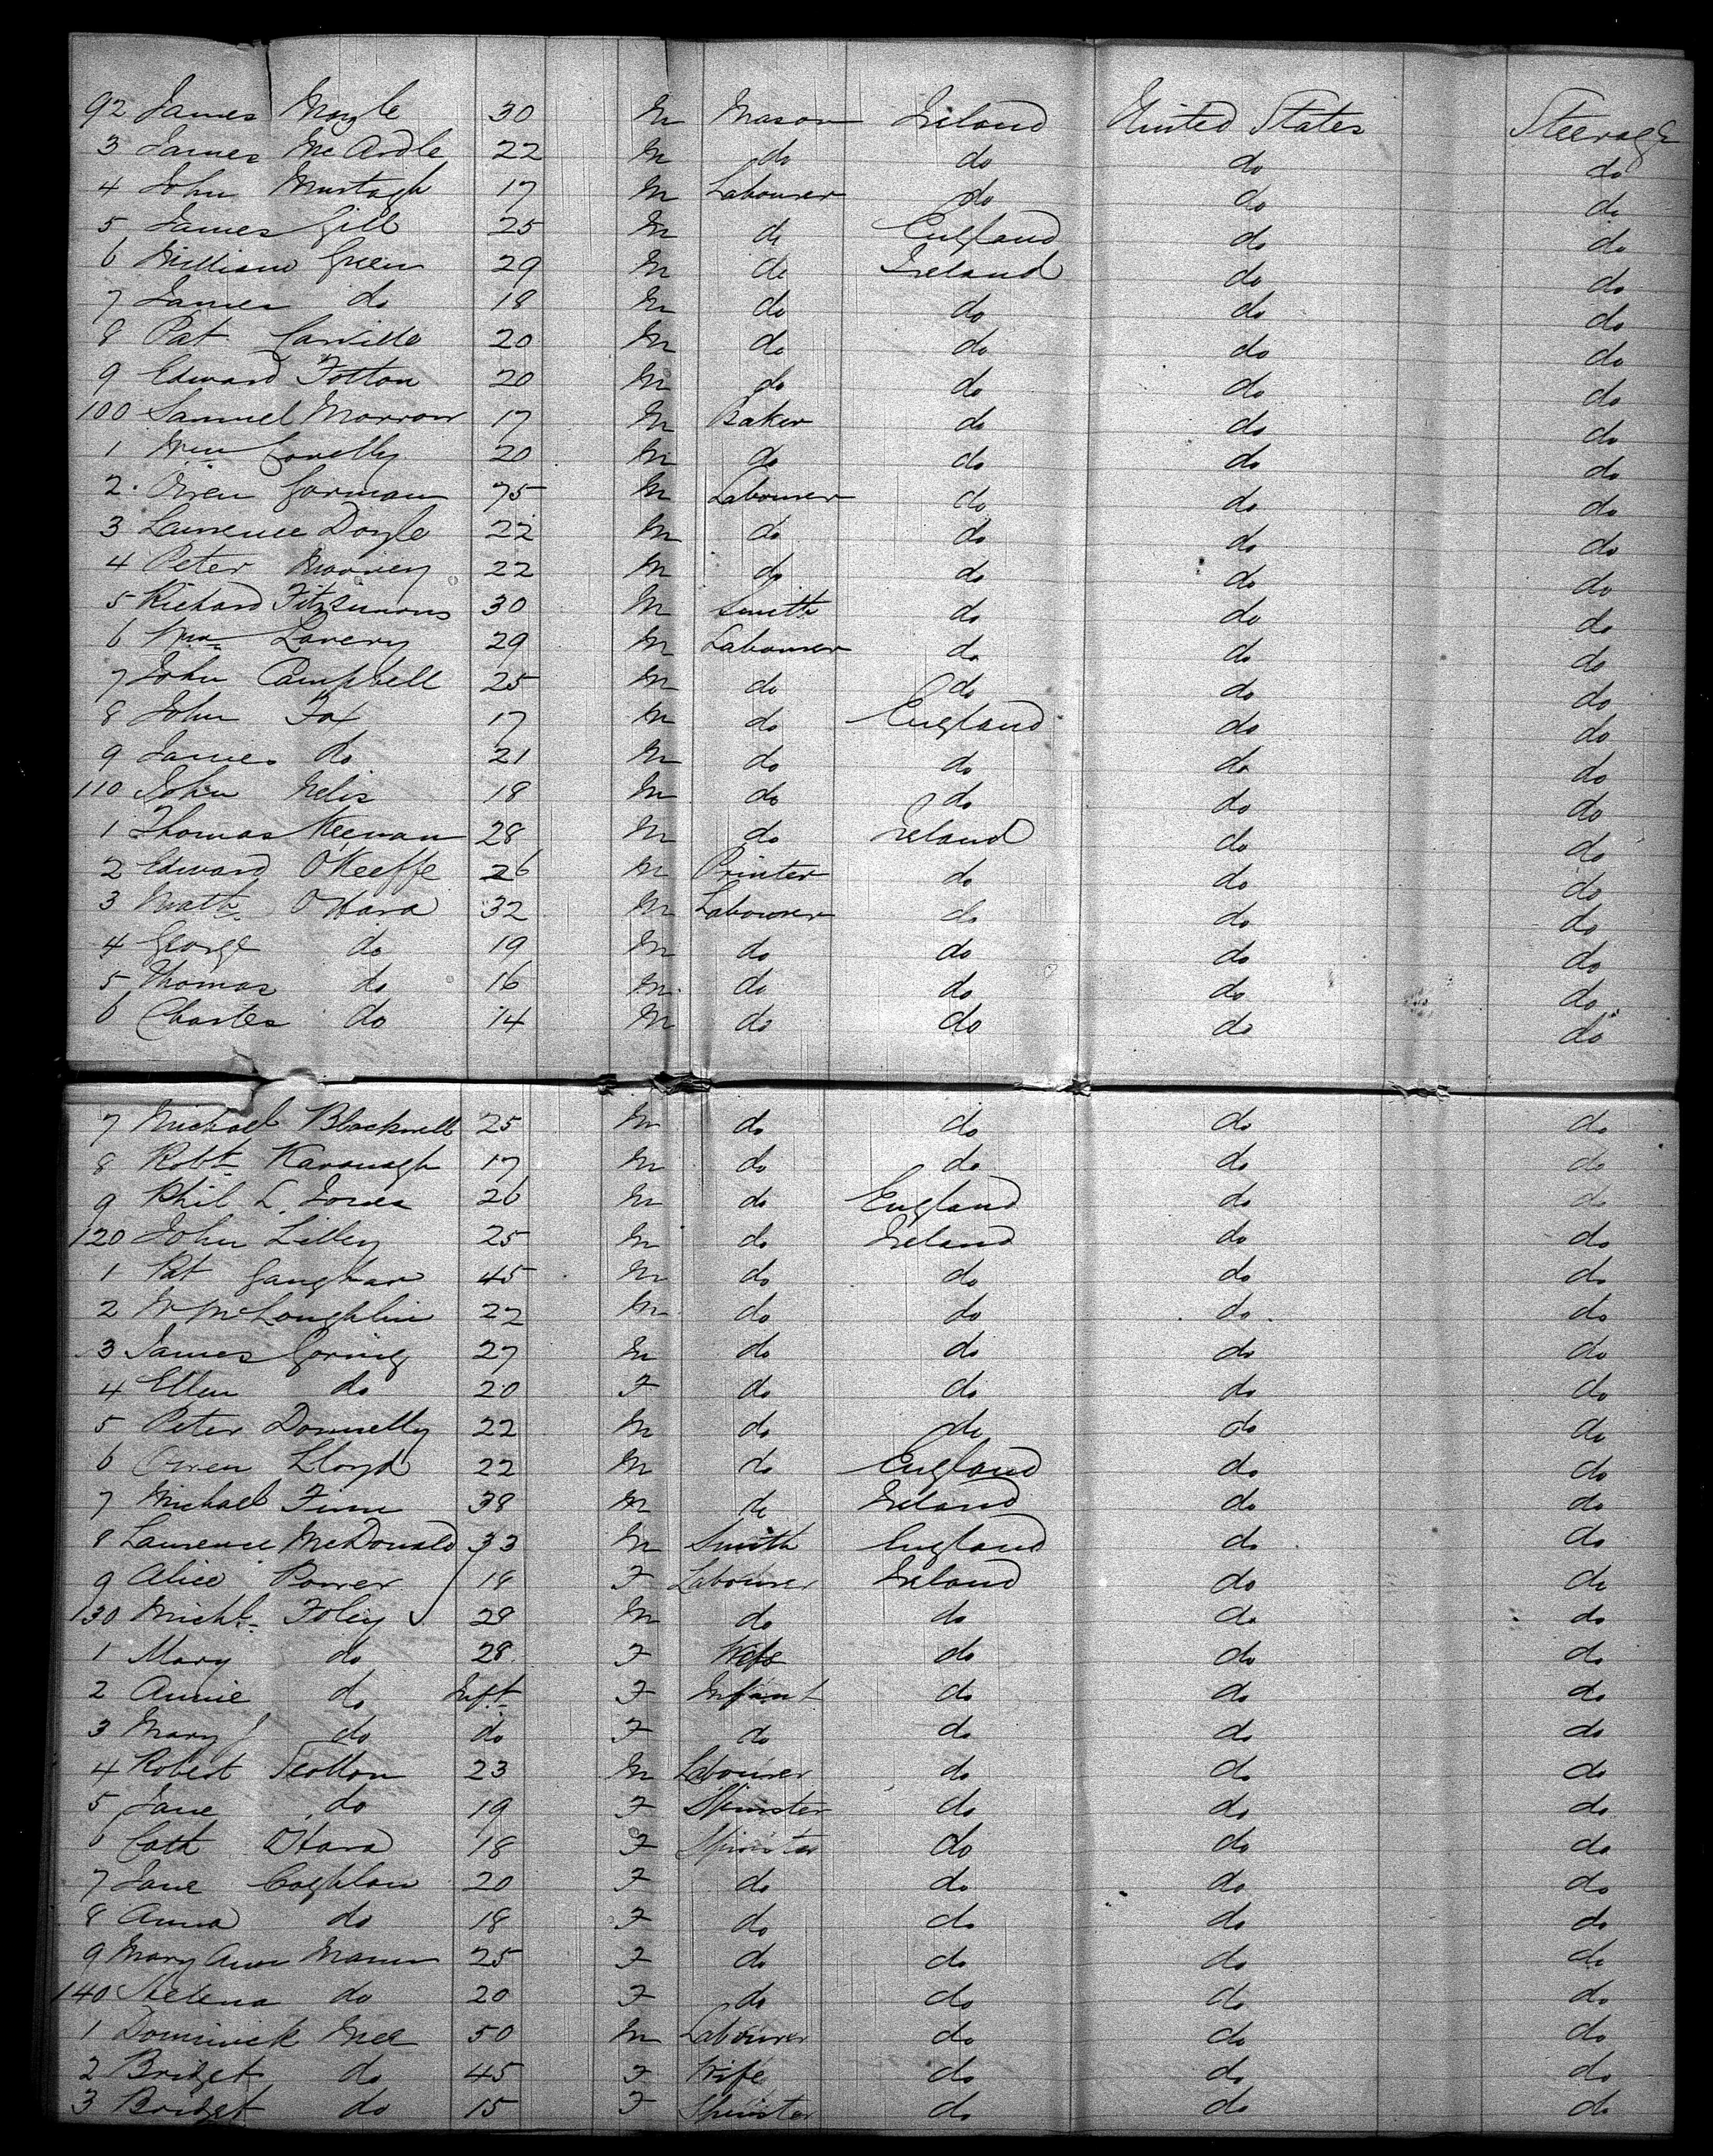 92 James Moyle 30 M Mason Ireland United States Steerage
3 James McArdle 22 M do do do do
4 John Murtagh 17 M Labourer do do do
5 James Gill 25 M do England do do
6 William Green 29 M do Ireland do do
7 James do 18 M do do do do
8 Pat Carville 20 M do do do do
9 Edward Totton 20 M do do do do
100 Samuel Morrow 17 M Baker do do do
1 Wm Conelly 20 M do do do do
2 Owen Gorman 75 M Labourer do do do
3 Laurence Doyle 22 M do do do do
4 Peter 22 M do do do do
5 Richard Fitzsimons 30 M Smith do do do
6 Wm Lavery 29 M Labourer do do do
7 John Campbell 25 M do do do do
8 John Fox 17 M do England do do
9 James do 21 M do do do do
110 John Nelis 18 M do do do do
1 Thomas Keenan 28 M do Ireland do do
2 Edward O'Keeffe 26 M Printer do do do
3 Matt O'Hara 32 M Labourer do do do
4 George do 19 M do do do do
5 Thomas do 16 M do do do do
6 Charles do 14 M do do do do
7 Michael Blackwell 25 M do do do do
8 Robt Kavanagh 17 M do do do do
9 Phil L. Jones 26 M do England do do
120 John Lilley 25 M do Ireland do do
1 Pat Gaughan 45 M do do do do
2 W McLoughlin 22 M do do do do
3 James Goring 27 M do do do do
4 Ellen do 20 F do do do do
5 Peter Donnelly 22 M do do do do
6 Owen Lloyd 22 M do England do do
7 Michael Finn 38 M do Ireland do do
8 Laurence McDonald 33 M Smith England do do
9 Alice Power 18 F Labourer Ireland do do
130 Michl Foley 28 M do do do do
1 Mary do 28 F Wife do do do
2 Annie do Inft F Infant do do do
3 Mary J do do F do do do do
4 Robert Scotton 23 M Labourer do do do
5 Jane do 19 F Spinster do do do
6 Cath O'Hara 18 F Spinster do do do
7 Jane Coghlan 20 F do do do do
8 Anna do 18 F do do do do
9 Mary Ann Mann 25 F do do do do
140 Helena do 20 F do do do do
1 Dominick Mee 50 M Labourer do do do
2 Bridget do 45 F Wife do do do
3 Bridget do 15 F Spinster do do do